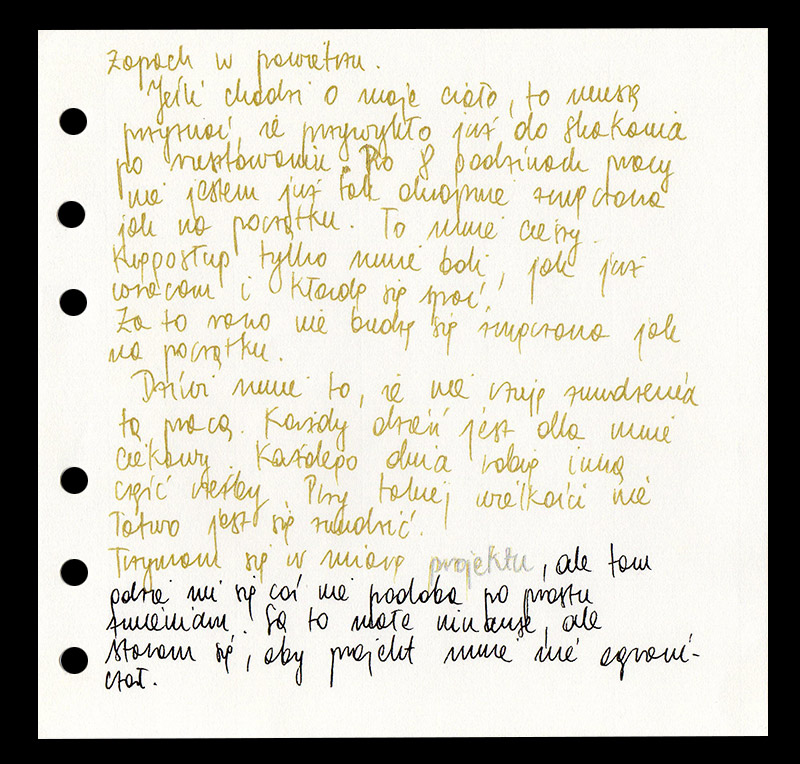 Zapach w powietrzu.
Jeśli chodzi o moje ciało, to muszę
przyznać, że przywykło już do skakania
po rusztowaniu. Po 8 godzinach pracy
nie jestem już tak okropnie zmęczona
jak na początku. To mnie cieszy.
Kręgosłup tylko mnie boli, jak już
wracam i kładę się spać.
Za to rano nie budzę się zmęczona jak
na początku.
Dziwi mnie to, że nie czuję znudzenia
tą pracą. Każdy dzień jest dla mnie
ciekawy. Każdego dnia robię inną
część rzeźby. Przy takiej wielkości nie
łatwo jest się znudzić.
Trzymam się w miarę projektu, ale tam
gdzie mi się coś nie podoba po prostu
zmieniam. Są to małe niuanse, ale
staram się, aby projekt mnie nie ograni-
czał.